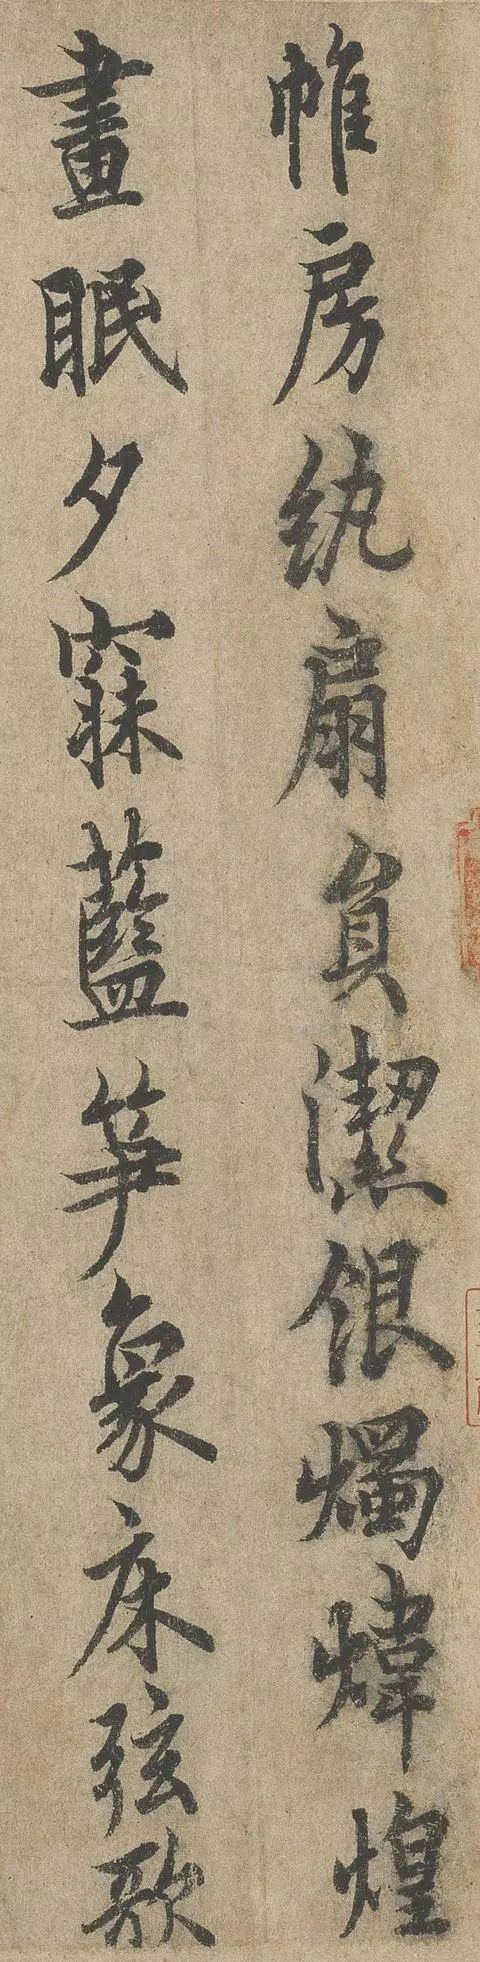 帷房紈扇員潔銀燭煒煌
晝眠夕寐藍笋象床弦歌